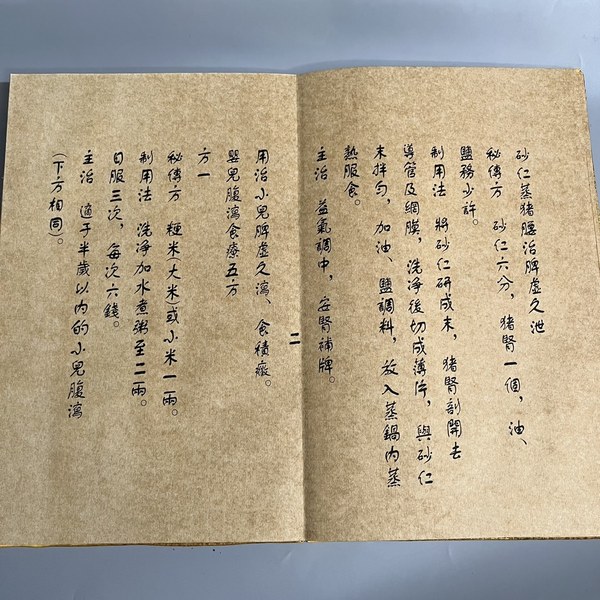 砂仁蒸猪腰治脾虚之泄
秘傳方 砂仁六分，猪腎一個，油、
鹽務少許。
制用法 將砂仁研成末，猪腎剖開去
導管及網膜，洗净後切成薄片，與砂仁
末拌匀，加油、鹽調料，放入蒸鍋内蒸
熟服食。
主治 益氣調中，安腎補牌。
二
用治小兒脾虚之瀉、食積痕。
嬰兒腹瀉食療五方
方一
秘傳方 粳米(大米)或小米一兩。
制用法 洗净加水煮粥至二兩。
日服三次，每次六錢。
主治 適于半歲以内的小兒腹瀉
(下方相同)。